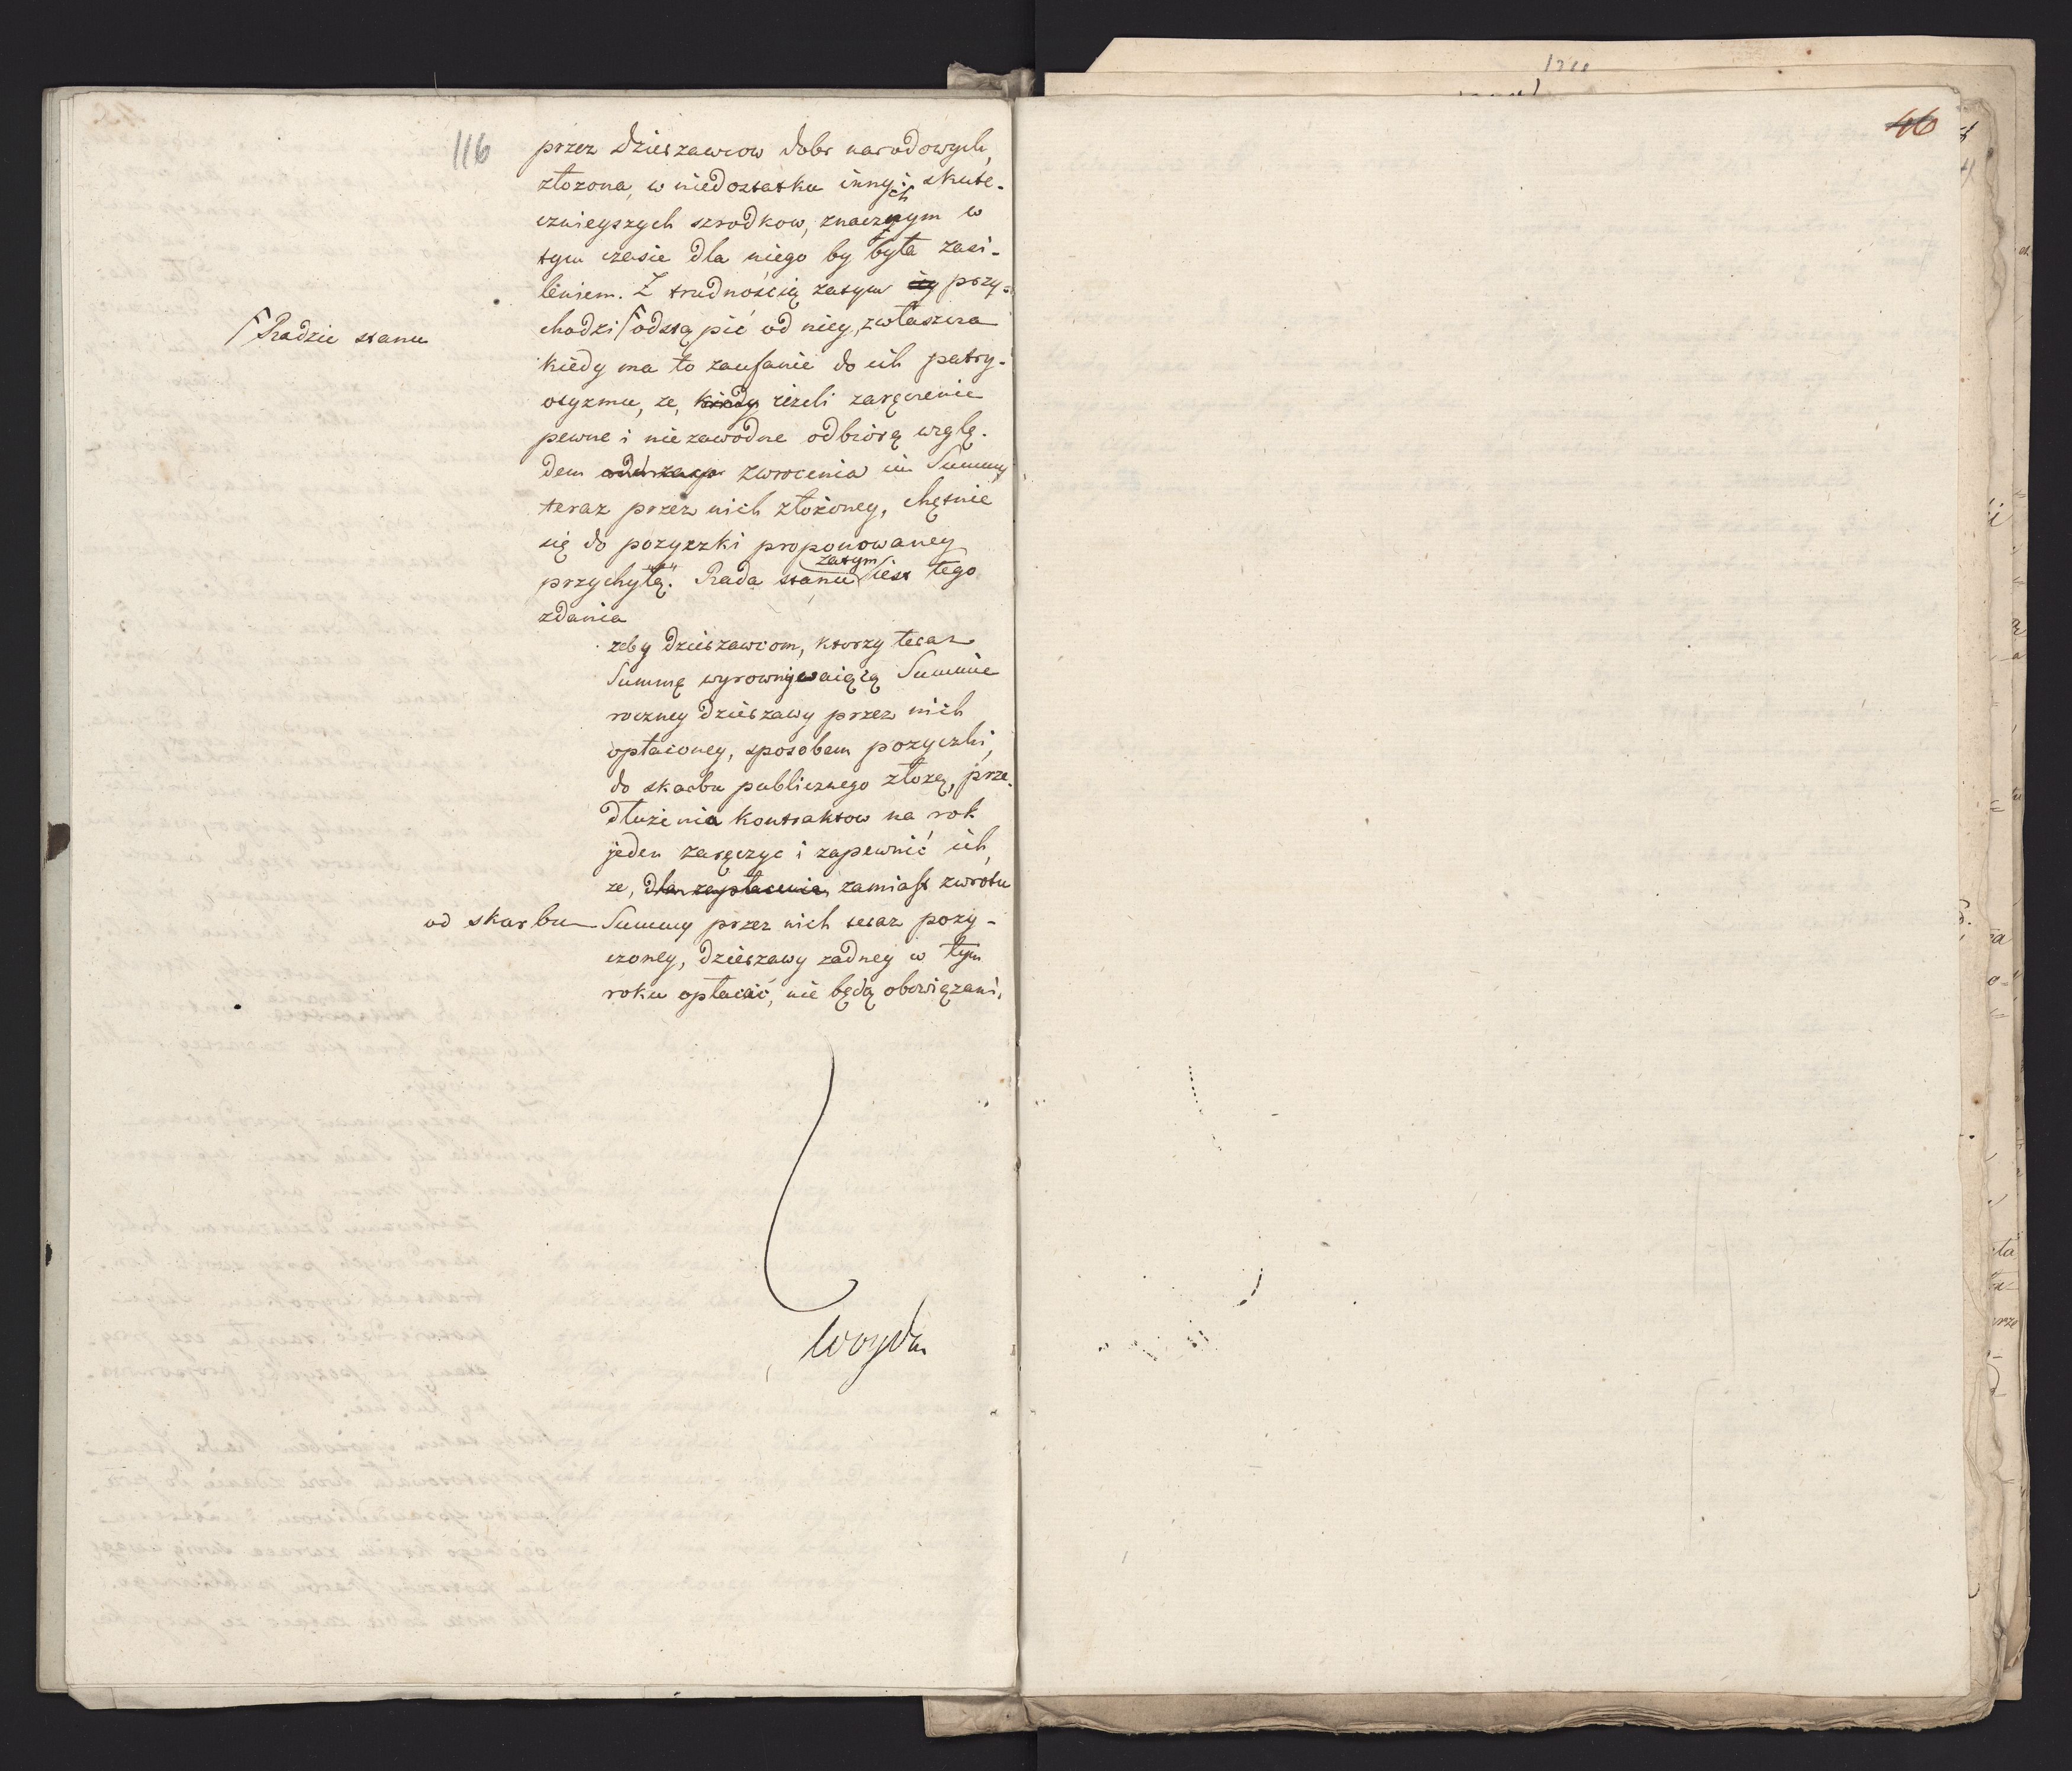 116
przez Dzierzawcow Dobr narodowych,
złozona, w niedostatku innych skute-
cznieyszych szrodkow, znacznym w
tym czasie dla niego by była zasi-
leniem. Z trudnością zatym iey przy-
chodzi ⌈ odstąpić od niey, zwłaszcza
⌈ Radzie stanu
kiedy ma to zaufanie do ich patry-
otyzmu, ze, kiedy ieżeli zaręczenie
pewne i niezawodne odbiorą wzglę-
dem zwrocenia im Summy
teraz przez nich złożoney, chętnie
się do pozyczki proponowaney
przychylą. Rada stanu zatym iest tego
zdania
zeby Dzierzawcom, ktorzy teraz
Summę wyrownywaiącą Summie
roczney Dzierzawy przez nich
opłaconey, sposobem pozyczki,
do skarbu publicznego złozą, prze-
dłużenia kontraktow na rok
jeden zaręczyc i zapewnić ich,
ze, dla zapłacenia zamiast zwrotu
od skarbu Summy przez nich teraz pozy-
czoney, Dzierzawy zadney w tym
roku opłacać, nie będą obowiązani.
Woyda
46